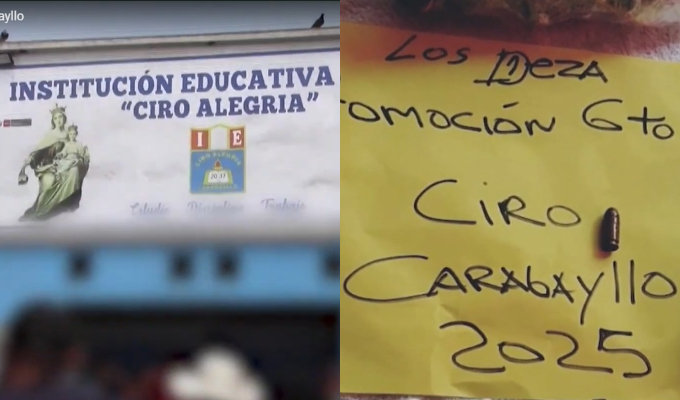 ayllo
INSTITUCIÓN EDUCATIVA
"CIRO ALEGRIA"
I E
CIRO ALEGRIA
Estudio Disciplina Trabajo
Los DEZA
OMOCIÓN 6to
CIRO
CARABAYllO
2025